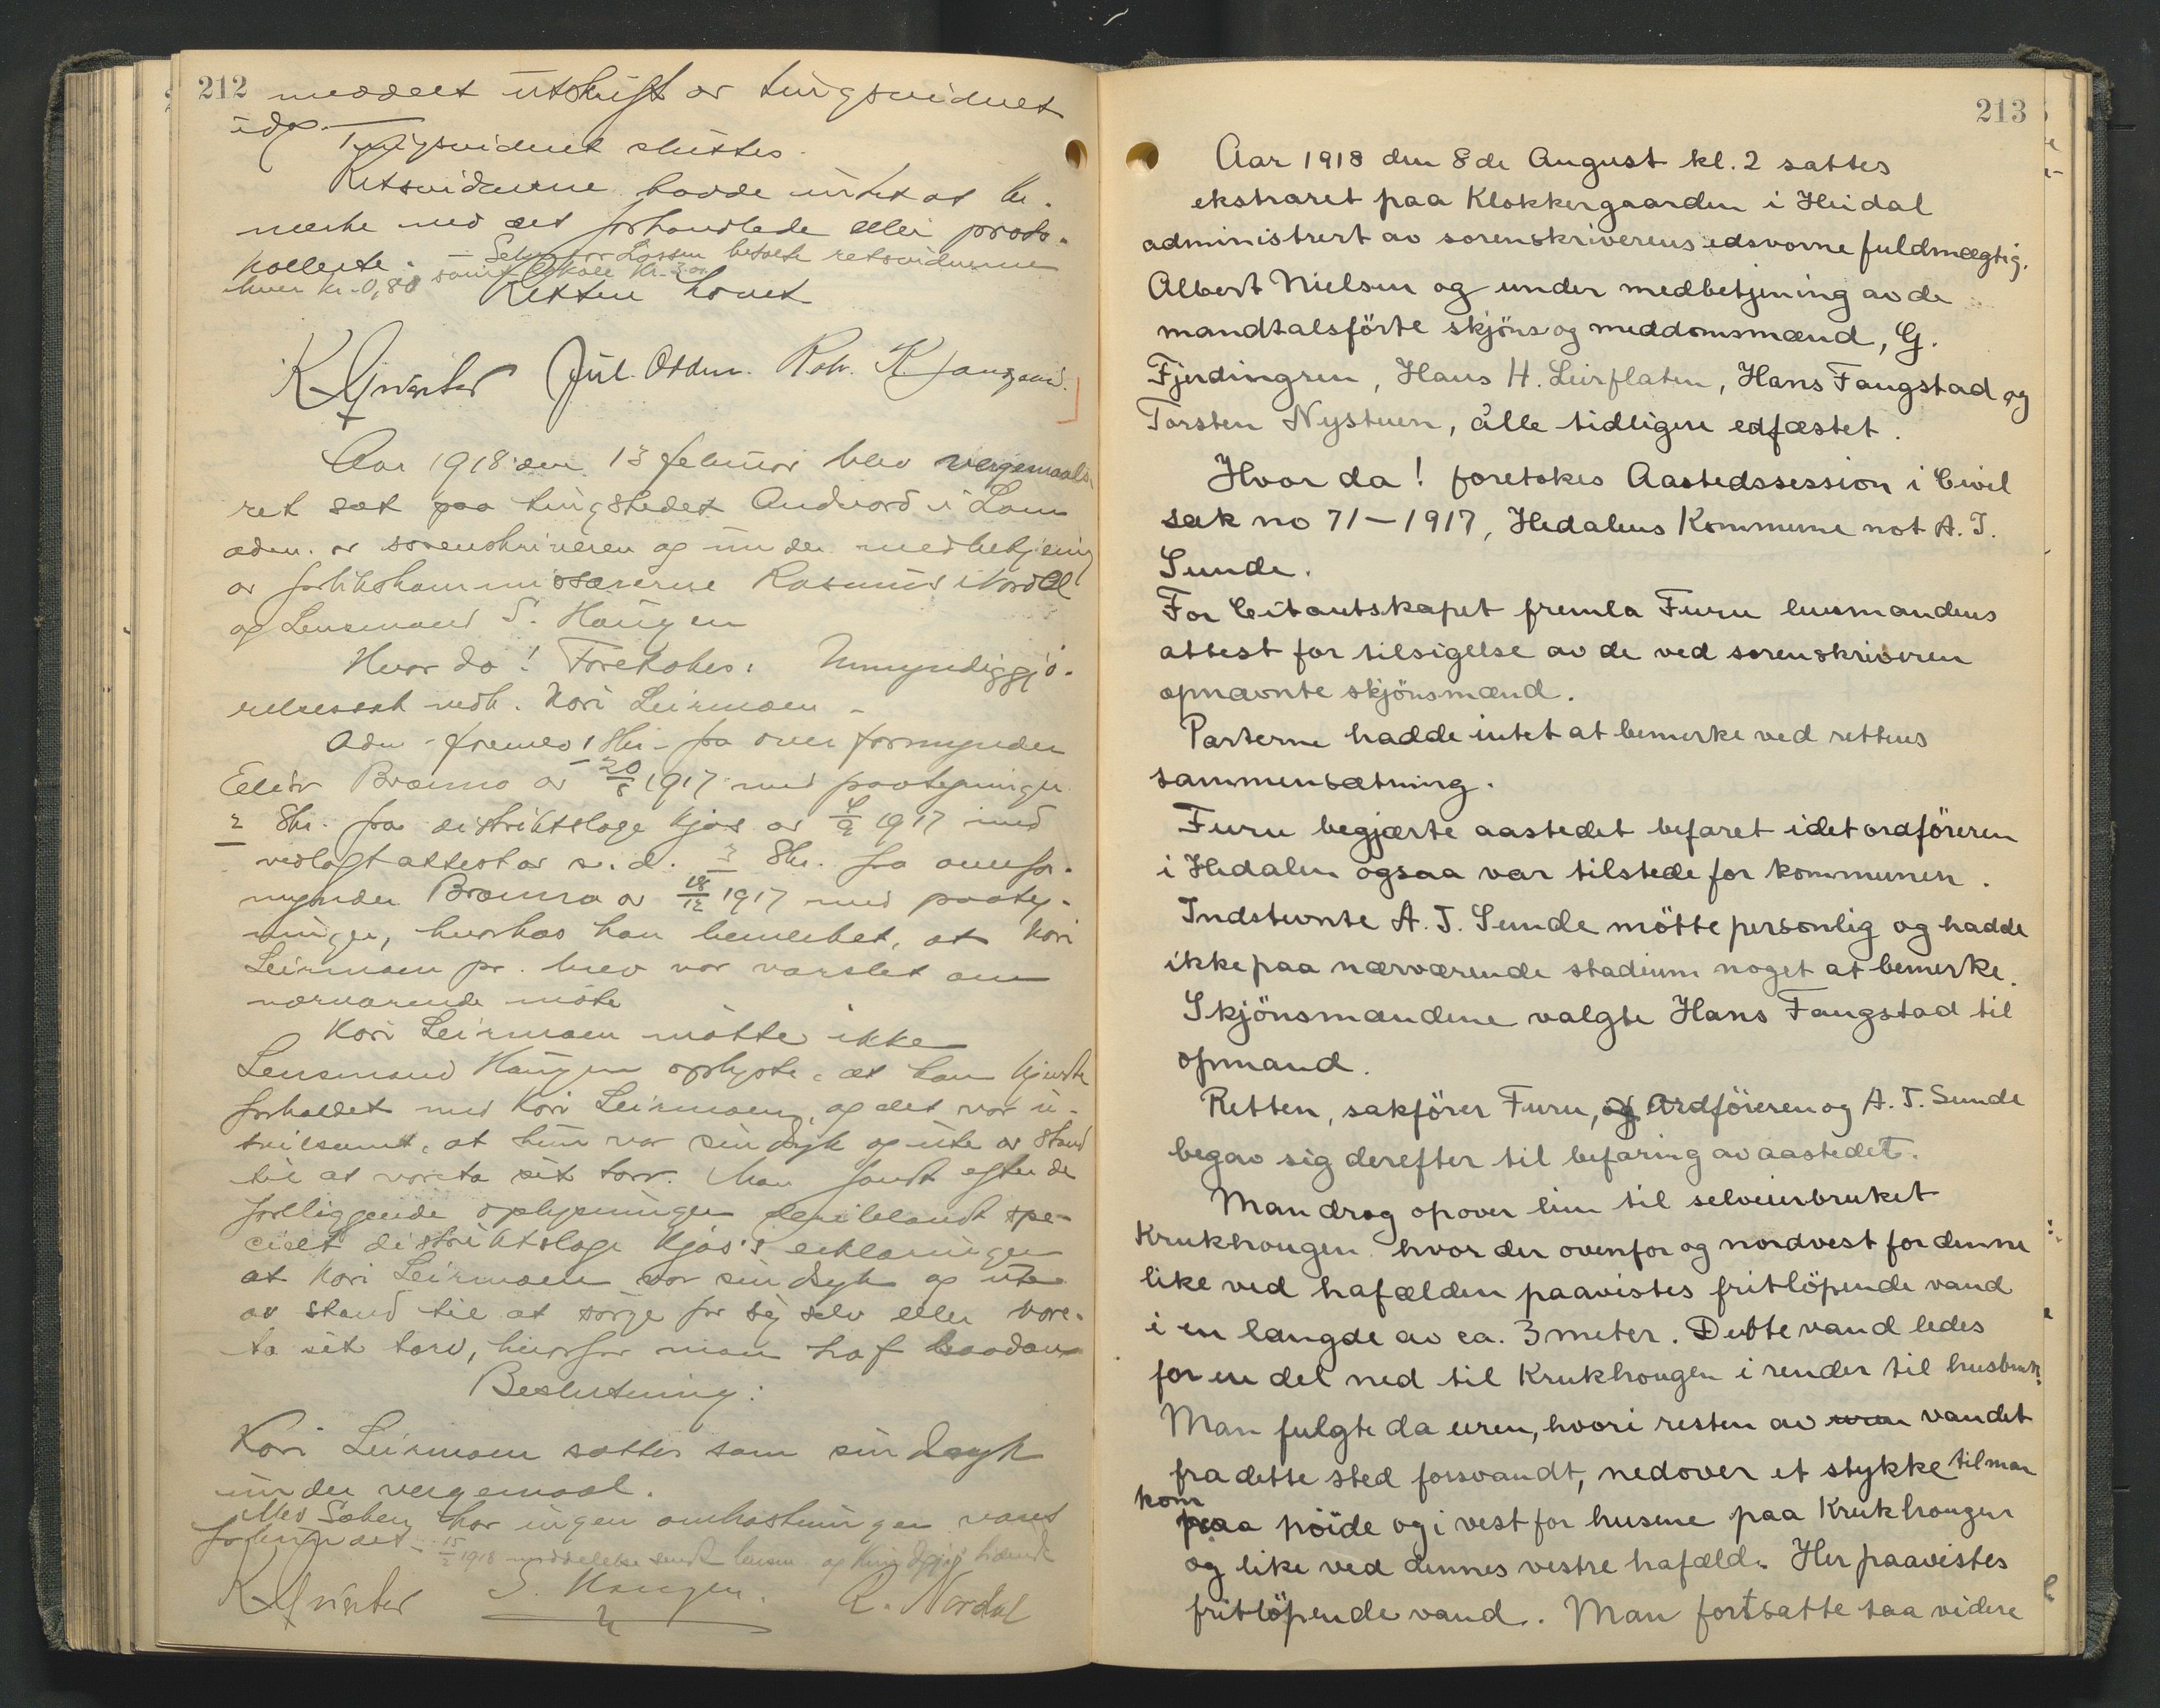 212
meddelt utskrift av tingsvidnet
Tingsvidnet sluttes.
Retsvidnerne havde intet at be-
merke ved det forhandlede eller proto-
kollerte. - Sakförer Lassen betalte retsvidnerne
hver kr. 0,80 samt lokale kr. 3.00
Retten hævet
Jul. Odden. K.
Aar 1918 den 13 februar blev vergemaals-
ret sat paa tingstedet Andvord i Lom
adm. av sorenskriveren og under medbetjening
av forlikskommissærerne Rasmus Nordal
og Lensmand S. Haugen
Hvor da! Foretokes: Umyndiggjö-
relsessak vedk. Kari Leirmoen -
Adm. fremla 1 Skr. fra overformynder
Brænno av 20/8 1917 med paategninger
2 Skr. fra distriktslæge Kjøs av 4/9 1917 med
vedlagt attest av s.d. 3 Skr. fra overfor-
mynder Brænno av 18/12 1917 med paateg-
ninger, hvorhos han bemerket, at Kari
Leirmoen pr. brev var varslet om
nærværende möte
Kari Leirmoen mötte ikke
Lensmand Haugen oplyste, at han kjendte
forholdet med Kari Leirmoen, og det var u-
tvilsomt, at hun var sindsyk og ute av stand
til at vareta sit tarv. Man fandt efter de
foreliggende oplysninger deriblandt spe-
cielt distriktslæge Kjøs's erklæringer
at Kari Leirmoen var sindsyk og ute
av stand til at sörge for sig selv eller vare-
ta sit tarv, hvorfor man traf saadan
Beslutning:
Kari Leirmoen sættes som sindsyk
under vergemaal.
Med Saken har ingen omkostninger været
forbundet. 15/2 1918 meddelelse sendt lensm. og
S. Haugen. R. Nordal
213
Aar 1918 den 8de August kl. 2 sattes
ekstraret paa Klokkergaarden i Heidal
administrert av sorenskriverens edsvorne fuldmægtig,
Albert Nielsen og under medbetjening av de
mandtalsförte skjöns og meddomsmænd, G.
Fjerdingren, Hans H. Leirflaten, Hans Faugstad og
Torsten Nystuen, alle tidligere edfæstet.
Hvor da! foretokes Aastedssession i Civil
sak no 71-1917, Hedalens Kommune mot A. T.
Sunde.
For Citantskapet fremla Furu lensmandens
attest for tilsigelse av de ved sorenskriveren
opnævnte skjönsmænd.
Parterne hadde intet at bemerke ved rettens
sammensætning.
Furu begjærte aastedet befaret idet ordföreren
i Hedalen ogsaa var tilstede for kommunen.
Indstevnte A. T. Sunde mötte personlig og hadde
ikke paa nærværende stadium noget at bemerke.
Skjönsmændene valgte Hans Faugstad til
opmand.
Retten, sakförer Furu, og Ordföreren og A. T. Sunde
begav sig derefter til befaring av aastedet.
Man drog opover lien til selveierbruket
Krukhougen hvor der ovenfor og nordvest for denne
like ved hafælden paavistes fritlöpende vand
i en længde av ca. 3 meter. Dette vand ledes
for en del ned til Krukhougen i render til husbruk.
Man fulgte da uren, hvori resten av uren vandet
fra dette sted forsvandt, nedover et stykke til man
kom
paa höide og i vest for husene paa Krukhougen
og like ved dennes vestre hafæld. Her paavistes
fritlöpende vand. Man fortsatte saa videre